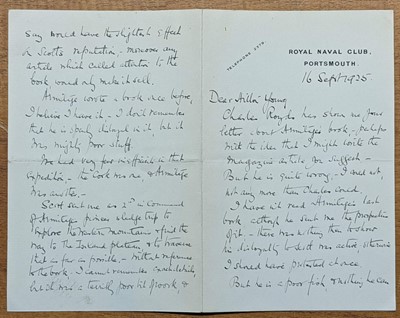 TELEPHONE
ROYAL NAVAL CLUB,
PORTSMOUTH.
16 Sept 1925
Dear Filson Young
Charles Royds has shown me your
letter about Armitage's book – perhaps
with the idea that I might write the
magazine article you suggest –
But he is quite wrong, I could not,
not any more than Charles could.
I have not read Armitage's last
book although he sent me the prospectus
of it – there was nothing there to show
his disloyalty to Scott was active, otherwise
I should have protested at once.
But he is a poor fish & nothing he can
say would have the slightest effect
on Scott's reputation – moreover any
article which called attention to the
book would only make it sell.
Armitage wrote a book once before,
I believe I have it – I don't remember
that he is openly disloyal in it, but it
was mighty poor stuff.
We had very few misfits in that
expedition – the cook was one & Armitage
was another –
Scott sent me as 2nd in Command
of Armitage's pioneer sledge trip to
explore the Western Mountains & find the
way to the Inland plateau, & to traverse
that as far as possible, – without reference
to the book, I cannot remember exactly
but it was a terribly poor